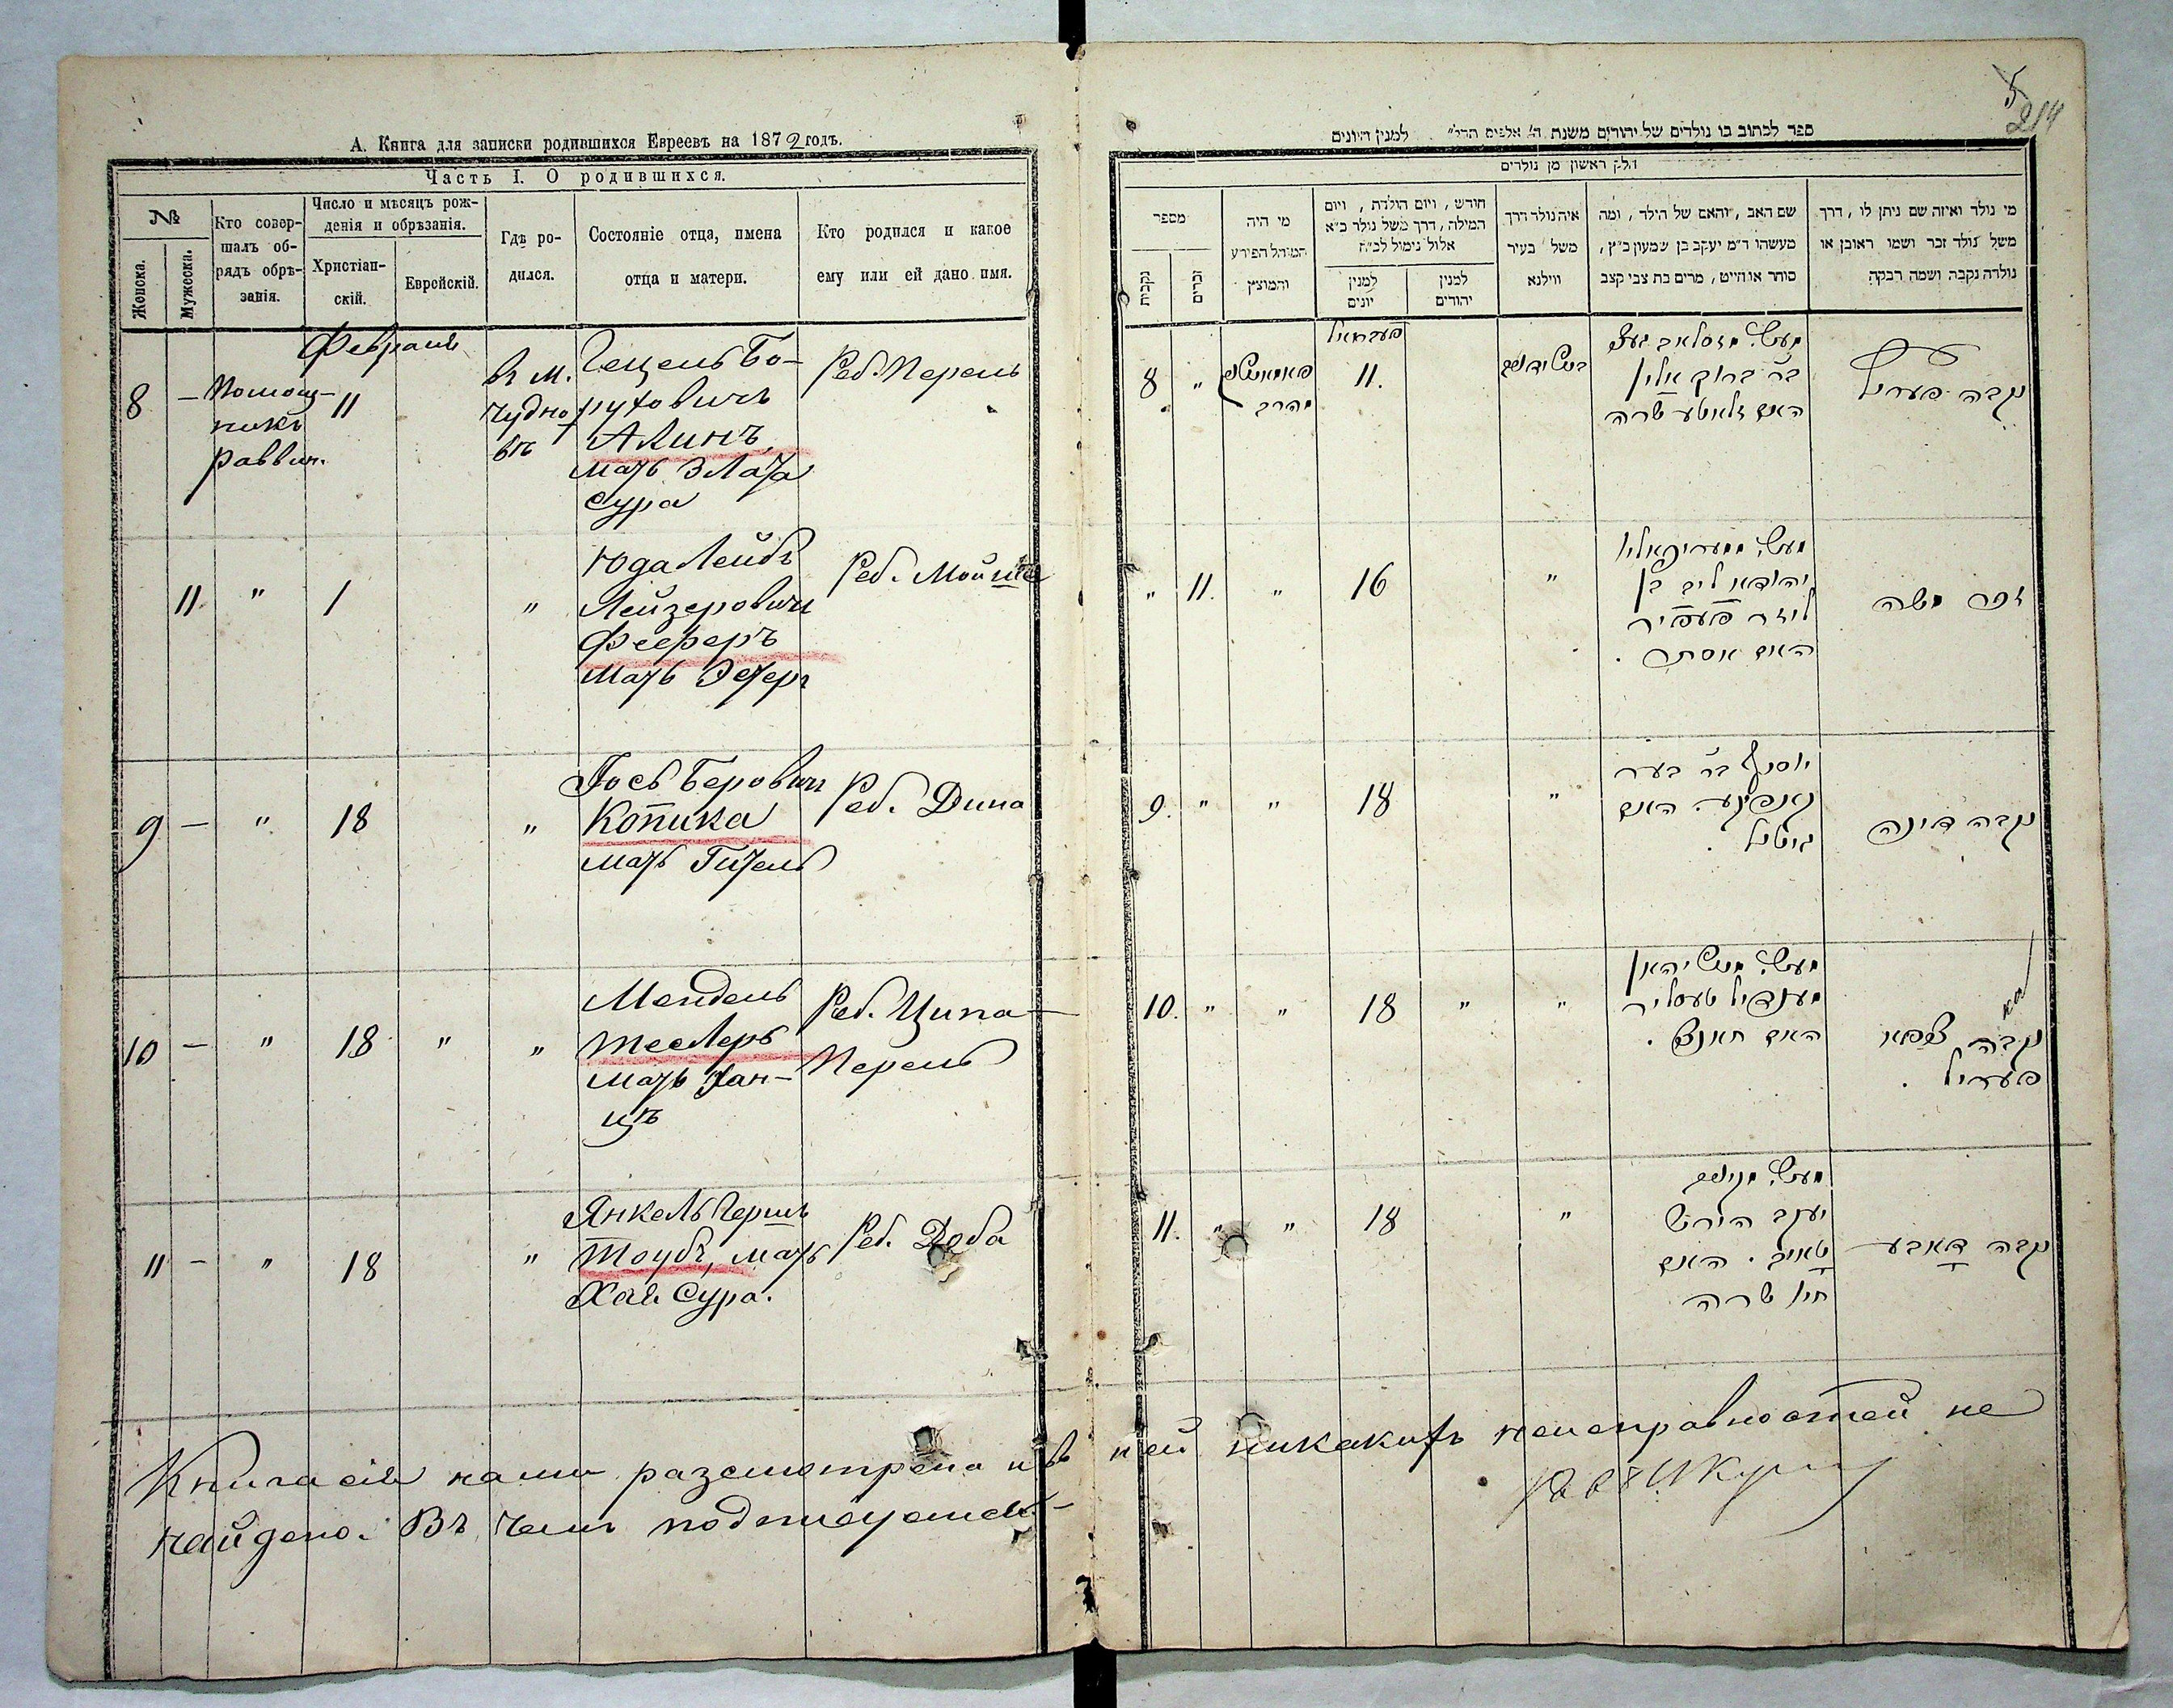 А. Книга для записки родившихся Евреевъ на 1872 годъ.
Часть I. О родившихся.
№
Женска.
Мужеска.
Кто совер-
шалъ об-
рядъ обрѣ-
занія.
Число и мѣсяцъ рож-
денія и обрѣзанія.
Христіан-
скій.
Еврейскій.
Гдѣ ро-
дился.
Состояніе отца, имена
отца и матери.
Кто родился и какое
ему или ей дано имя.
Февраль
8 — Помощ-
никъ
раввин.
11
въ м.
Чудно
вѣ
Гецель Бо-
руховичъ
Алинъ,
мать Злата
Сура
Реб. Перель
11 " 1 "
Юда Лейбъ
Лейзеровичъ
Феферъ
Мать Эстеръ
Реб. Мойше
9 — " 18 "
Іось Беровичъ
Копика
мать Гитель
Реб. Дина
10 — " 18 " "
Мендель
Теслеръ
мать Хан-
цѣ
Реб. Ципа-
Перель
11 — " 18 "
Янкель Гершъ
Тоубъ, мать
Хая Сура.
Реб. Доба
5
214
ספר לכתוב בו נולדים של יהודים משנת ה' אלפים תרל" למנין היונים
חלק ראשון מן נולדים
מספר
נקבות
זכרים
מי היה
המוהל הפורע
והמוצץ
חודש, ויום הולדת, ויום
המילה, דרך משל נולד כ"א
אלול נימול לכ"ח
למנין
יונים
למנין
יהודים
איה נולד דרך
משל בעיר
ווילנא
שם האב, והאם של הילד, ומה
מעשהו ד"מ יעקב בן שמעון כ"ץ,
סוחר או חייט, מרים בת צבי קצב
מי נולד ואיזה שם ניתן לו, דרך
משל נולד זכר ושמו ראובן או
נולדה נקבה ושמה רבקה
8 " 11.
בר ברוך אלין
האם זלאטע שרה
נקבה פעריל
" 11. " 16 "
יהודא ליב בן
ליזר פעפיר
האם אסתר.
זכר משה
9. " " 18 "
יוסף בר בער
קאפיקע. האם
גיטל.
נקבה דינה
10. " " 18 " "
מענדיל טעסליר
האם חאנצי.
נקבה ציפא
פעריל.
11. " " 18 "
יעקב הירש
טאוב. האם
חי' שרה
נקבה דאבע
Книга сія нами разсмотрена и въ ней никакихъ неисправностей не
найдено. Въ чемъ подписуемся